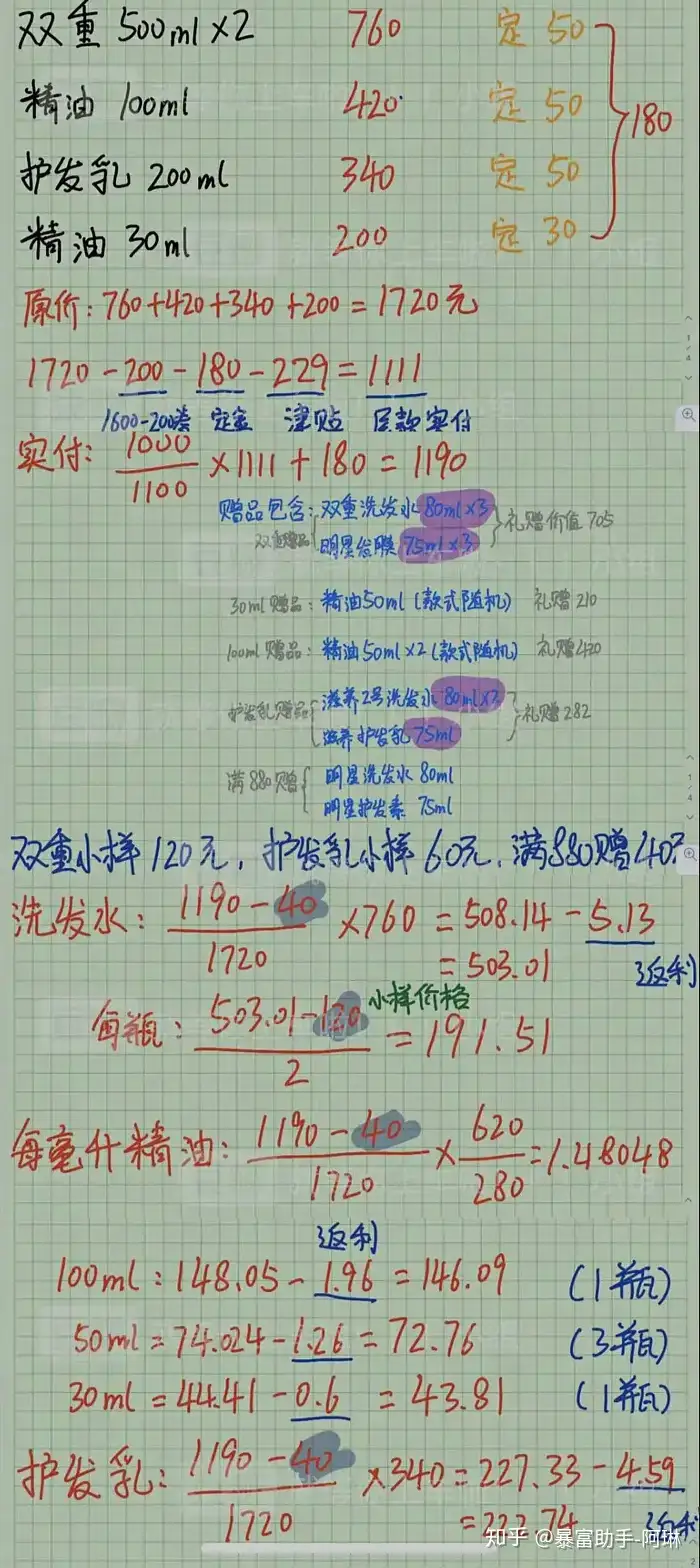 双重 500ml ×2 760 定 50
精油 100ml 420 定 50
180
护发乳 200ml 340 定 50
精油 30ml 200 定 30
原价: 760+420+340+200=1720元
1720-200-180-229=1111
1600-200券 定金 津贴 尾款实付
实付: 1000/1100 ×1111+180=1190
赠品包含: 双重洗发水 80ml×3
双重赠品 明星发膜 75ml×3 礼赠价值 705
30ml赠品: 精油50ml (款式随机) 礼赠 210
100ml赠品: 精油50ml×2 (款式随机) 礼赠420
护发乳赠品 滋养2号洗发水 80ml×3
滋养护发乳 75ml 礼赠 282
满880赠 明星洗发水 80ml
明星护发素 75ml
双重小样120元, 护发乳小样60元, 满880赠40元
洗发水: 1190-40/1720 ×760=508.14-5.13
=503.01 返利
每瓶: 503.01-120/2 =191.51
小样价格
每毫升精油: 1190-40/1720 × 620/280=1.48048
返利
100ml: 148.05-1.96=146.09 (1瓶)
50ml=74.024-1.26=72.76 (3瓶)
30ml=44.41-0.6=43.81 (1瓶)
护发乳: 1190-40/1720 ×340=227.33-4.59
=222.74 返利
知乎 @暴富助手-阿琳